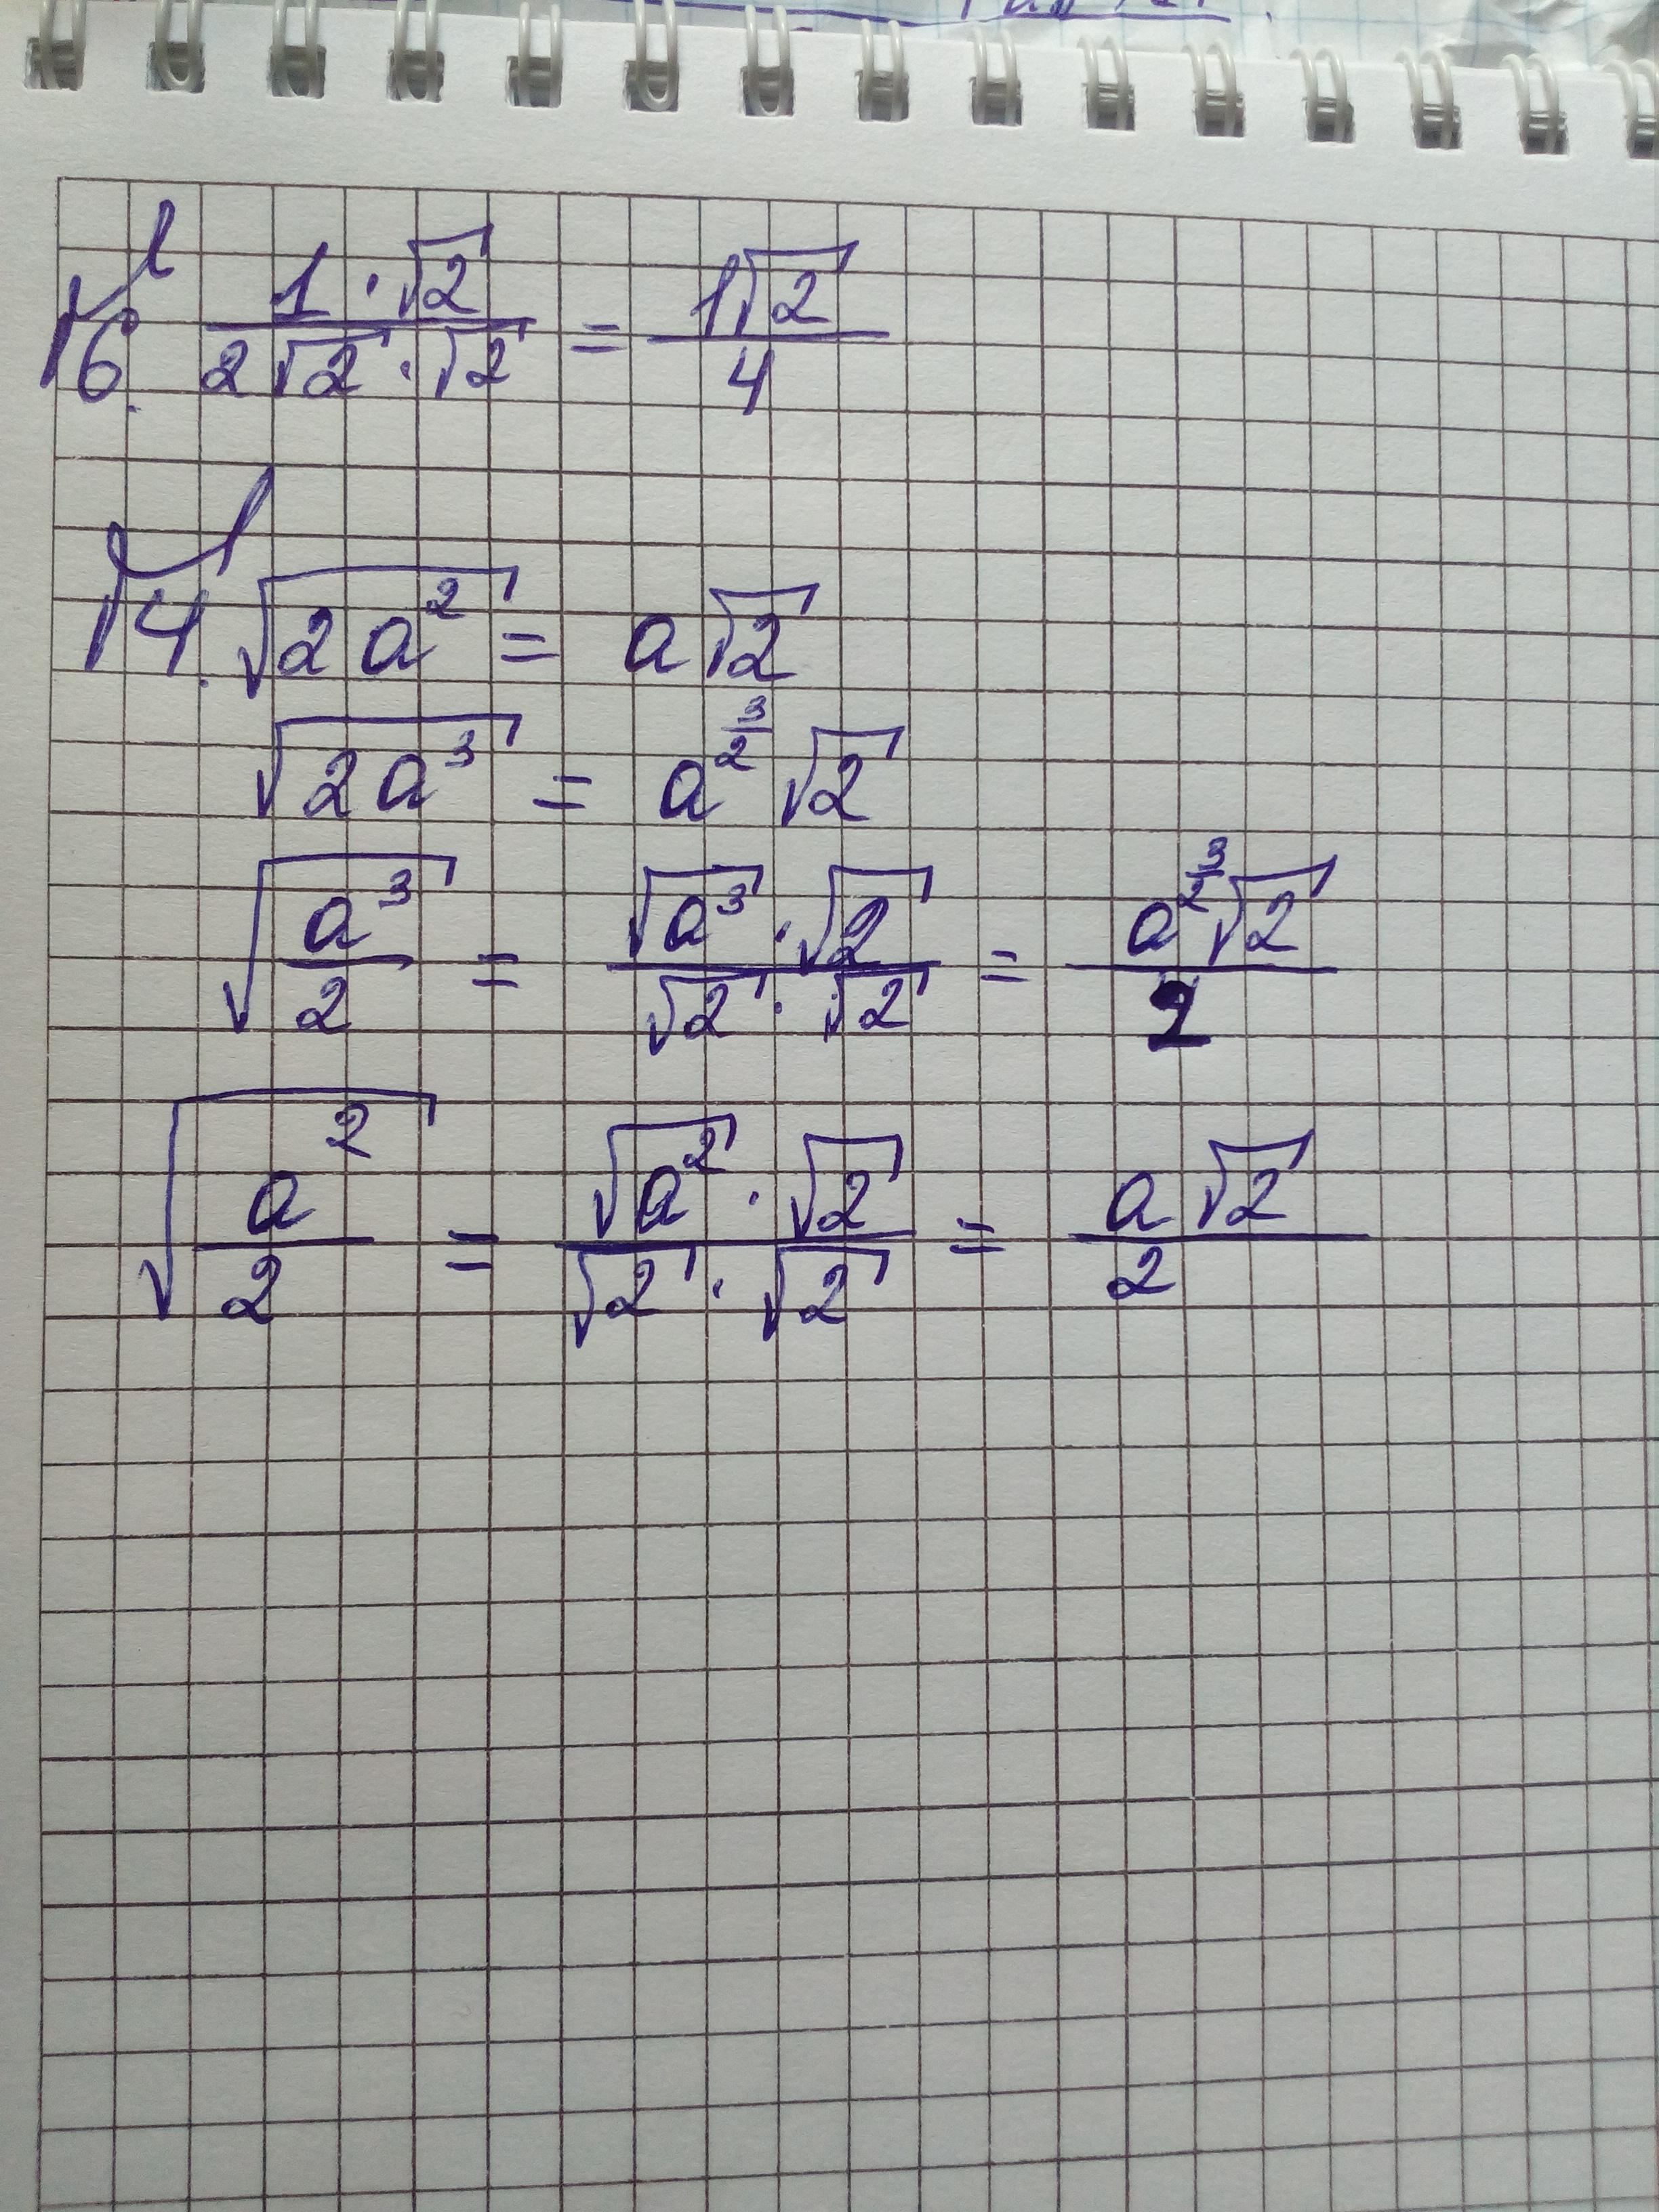 √6. (1 · √2)/(2√2 · √2) = (1√2)/4
√4. √(2a²) = a√2
√(2a³) = a^(3/2) √2
√(a³/2) = (√a³ · √2)/(√2 · √2) = (a^(3/2) √2)/2
√(a²/2) = (√a² · √2)/(√2 · √2) = (a√2)/2